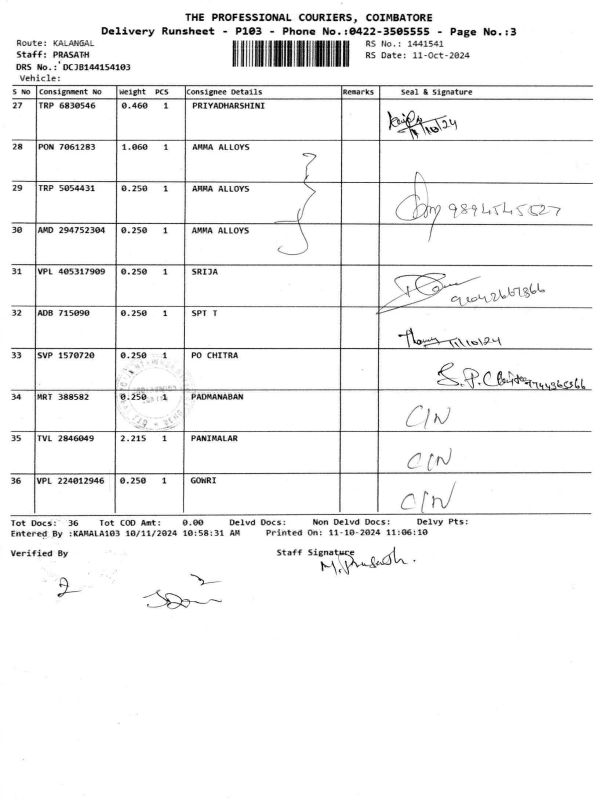 THE PROFESSIONAL COURIERS, COIMBATORE
Delivery Runsheet - P103 - Phone No.:0422-3505555 - Page No.:3
Route: KALANGAL RS No.: 1441541
Staff: PRASATH RS Date: 11-Oct-2024
DRS No.: DCJB144154103
Vehicle:
S No Consignment No Weight PCS Consignee Details Remarks Seal & Signature
27 TRP 6830546 0.460 1 PRIYADHARSHINI
11/10/24
28 PON 7061283 1.060 1 AMMA ALLOYS
29 TRP 5054431 0.250 1 AMMA ALLOYS
9894545527
30 AMD 294752304 0.250 1 AMMA ALLOYS
31 VPL 405317909 0.250 1 SRIJA
32 ADB 715090 0.250 1 SPT T
11/10/24
33 SVP 1570720 0.250 1 PO CHITRA
34 MRT 388582 0.250 1 PADMANABAN C/N
35 TVL 2846049 2.215 1 PANIMALAR C/N
36 VPL 224012946 0.250 1 GOWRI C/N
Tot Docs: 36 Tot COD Amt: 0.00 Delvd Docs: Non Delvd Docs: Delvy Pts:
Entered By :KAMALA103 10/11/2024 10:58:31 AM Printed On: 11-10-2024 11:06:10
Verified By Staff Signature
M. Prasath.
2
2